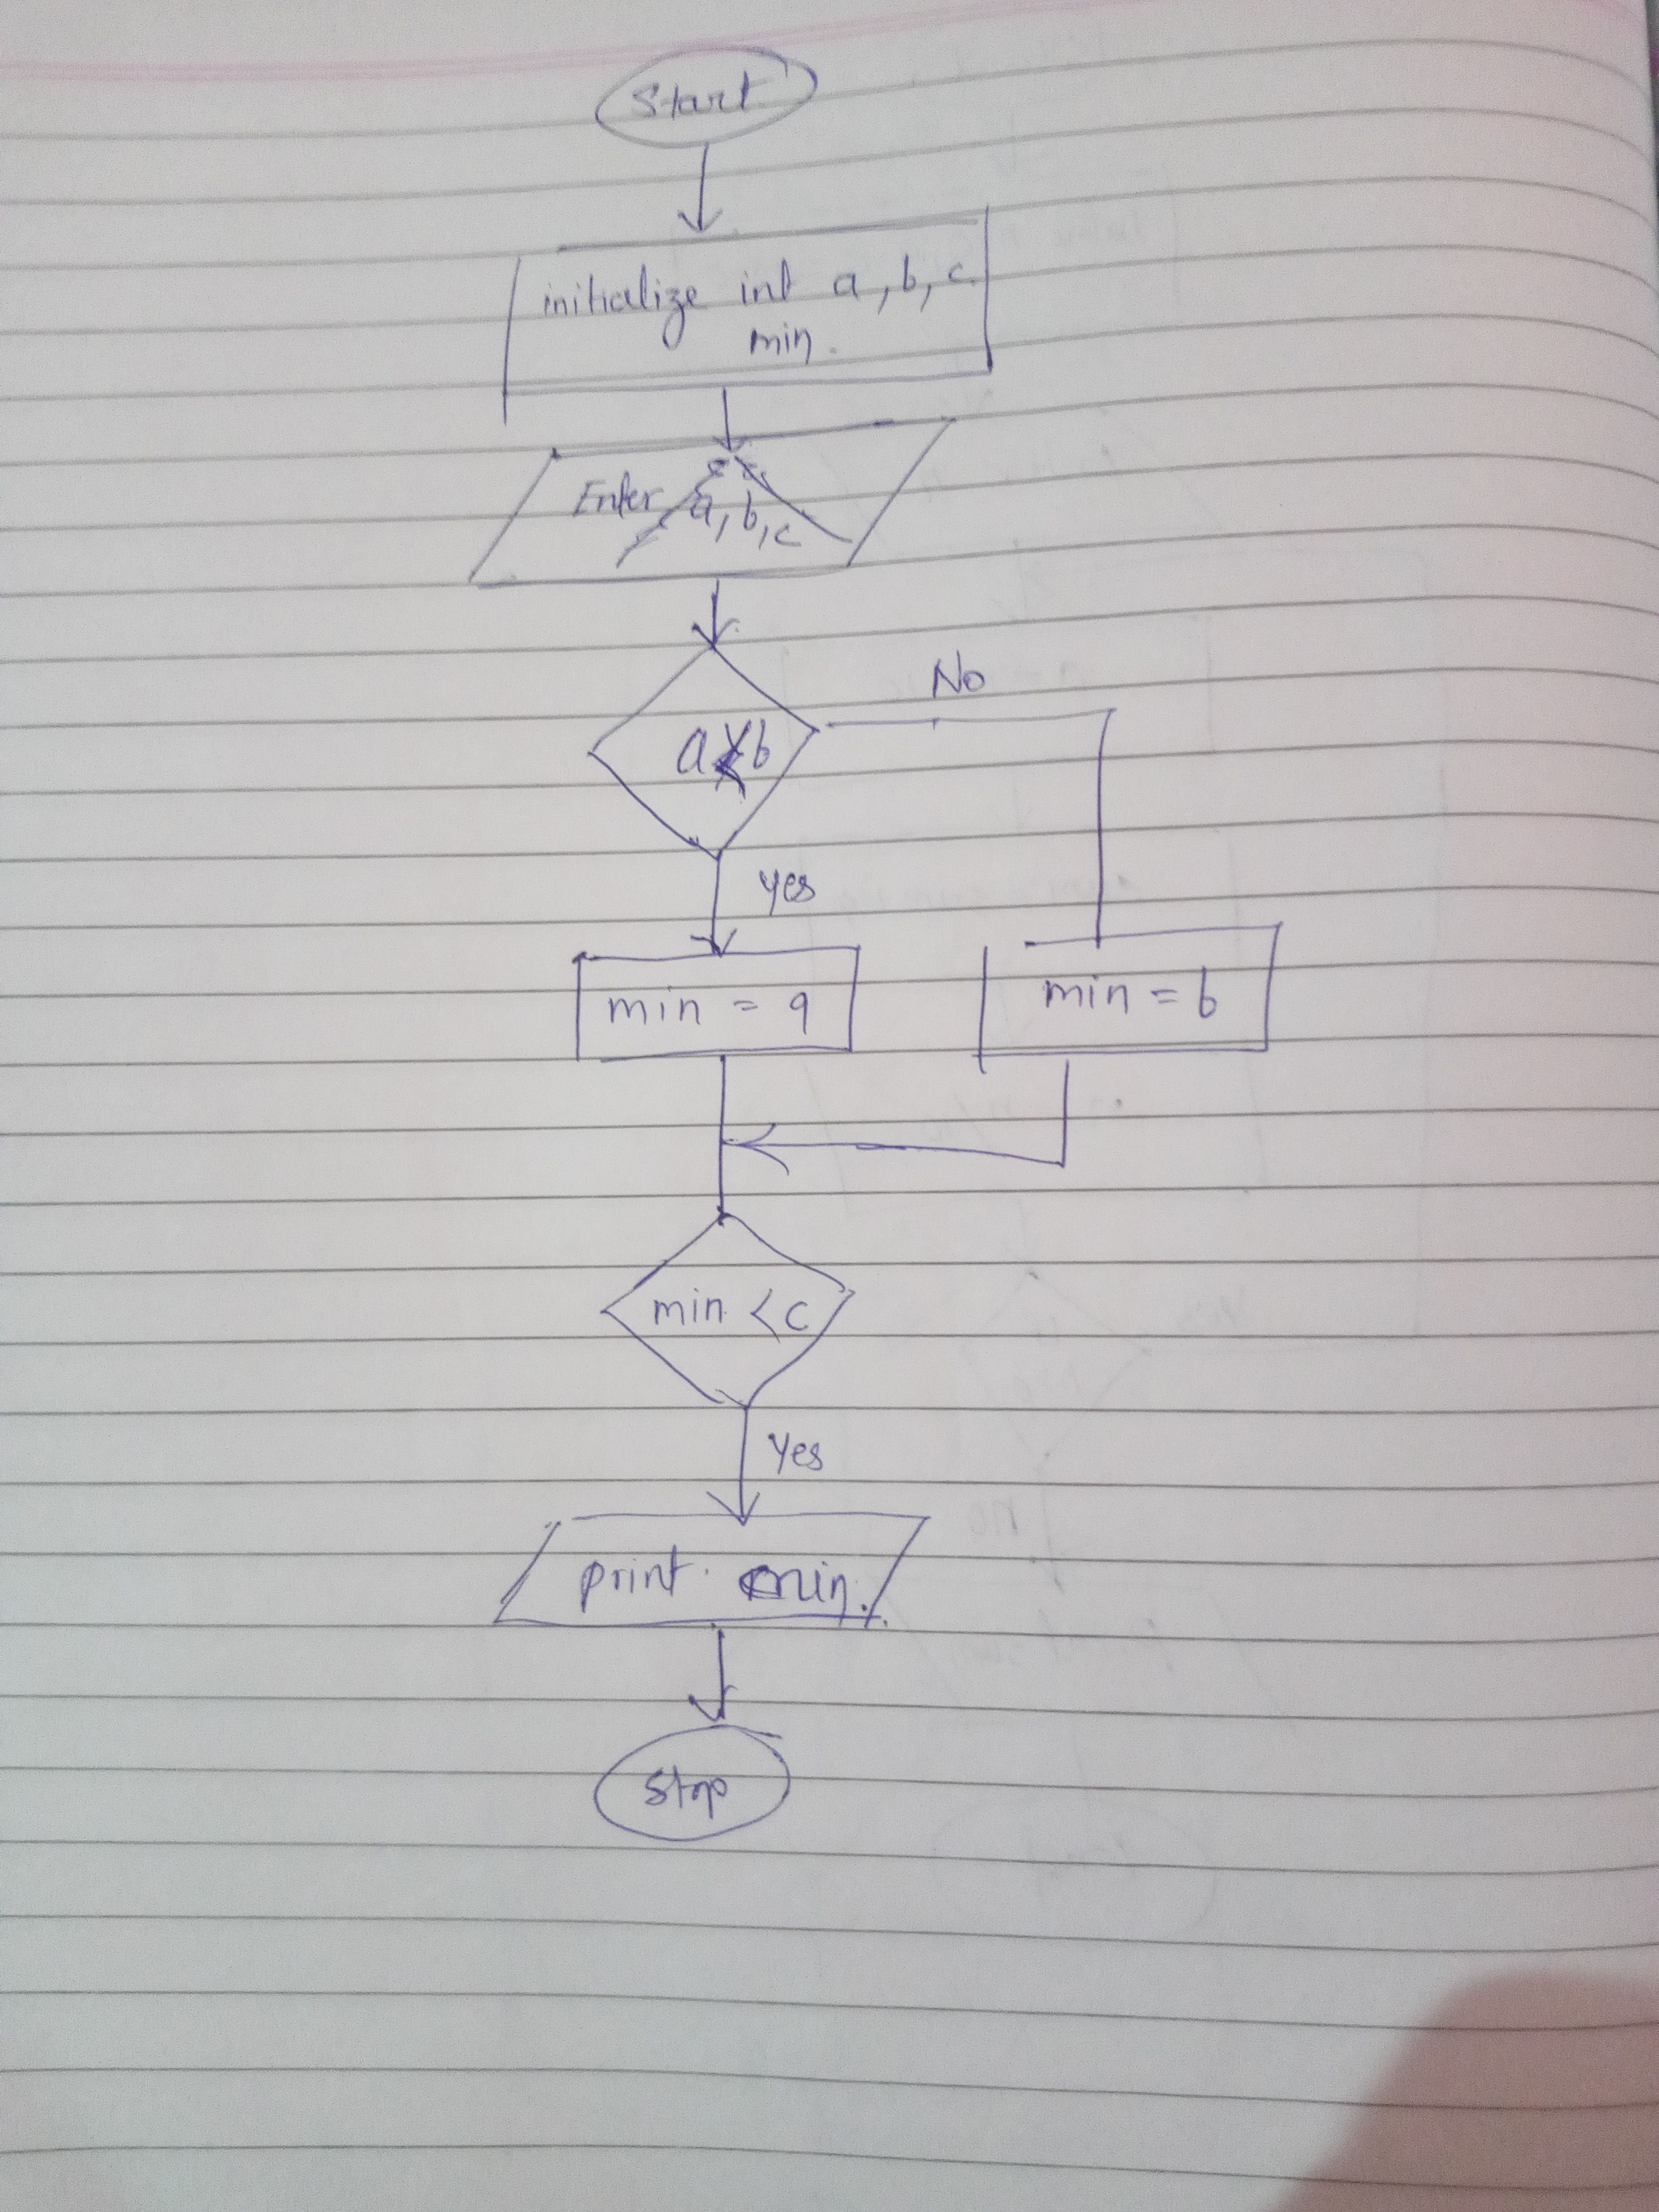 Start
initialize int a, b, c.
min.
Enter a, b, c
No
a<b
yes
min = a
min = b
min < c
Yes
print. min.
Stop